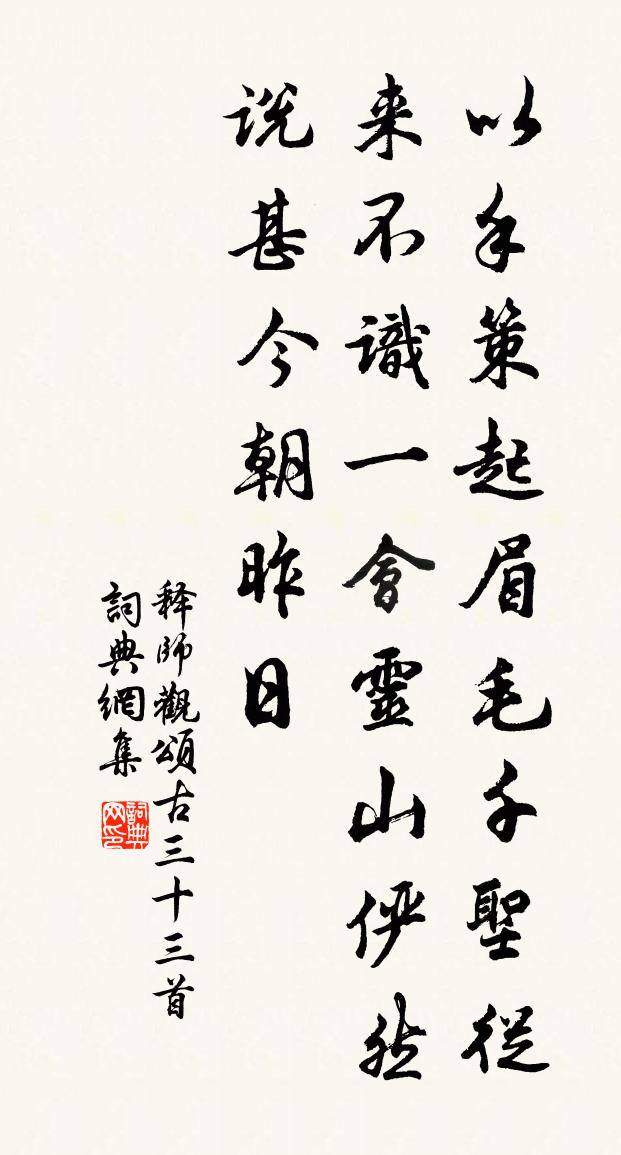 以手策起眉毛千聖從
来不識一會靈山儼然
説甚今朝昨日
释師觀頌古三十三首
詞典網集
詞典网印